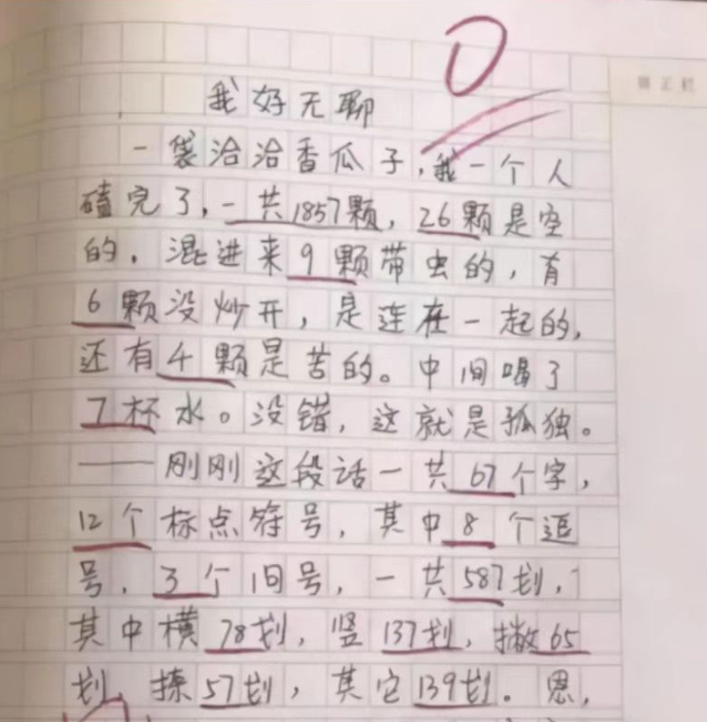 0
订正栏
我好无聊
一袋洽洽香瓜子，我一个人
磕完了，一共1857颗，26颗是空
的，混进来9颗带虫的，有
6颗没炒开，是连在一起的，
还有4颗是苦的。中间喝了
7杯水。没错，这就是孤独。
——刚刚这段话一共67个字，
12个标点符号，其中8个逗
号，3个问号，一共587划，
其中横78划，竖137划，撇65
划，捺57划，其它139划。恩，